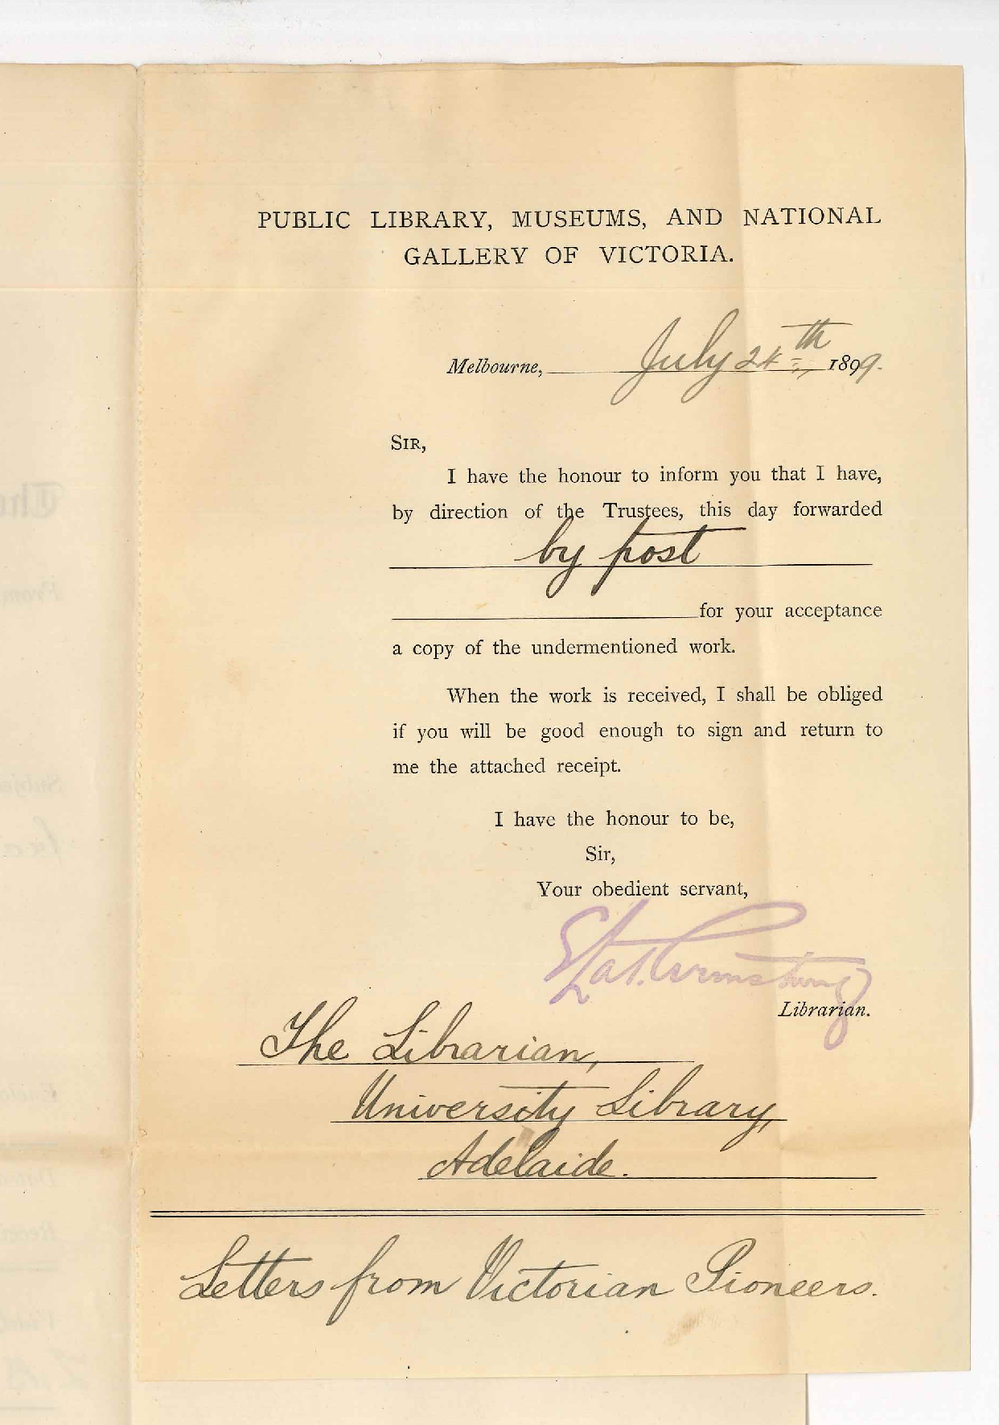 PUBLIC LIBRARY, MUSEUMS, AND NATIONAL
GALLERY OF VICTORIA.
Melbourne, July 24th, 1899.
SIR,
I have the honour to inform you that I have,
by direction of the Trustees, this day forwarded
by post
for your acceptance
a copy of the undermentioned work.
When the work is received, I shall be obliged
if you will be good enough to sign and return to
me the attached receipt.
I have the honour to be,
Sir,
Your obedient servant,
E La T. Armstrong
Librarian.
The Librarian,
University Library,
Adelaide.
Letters from Victorian Pioneers.